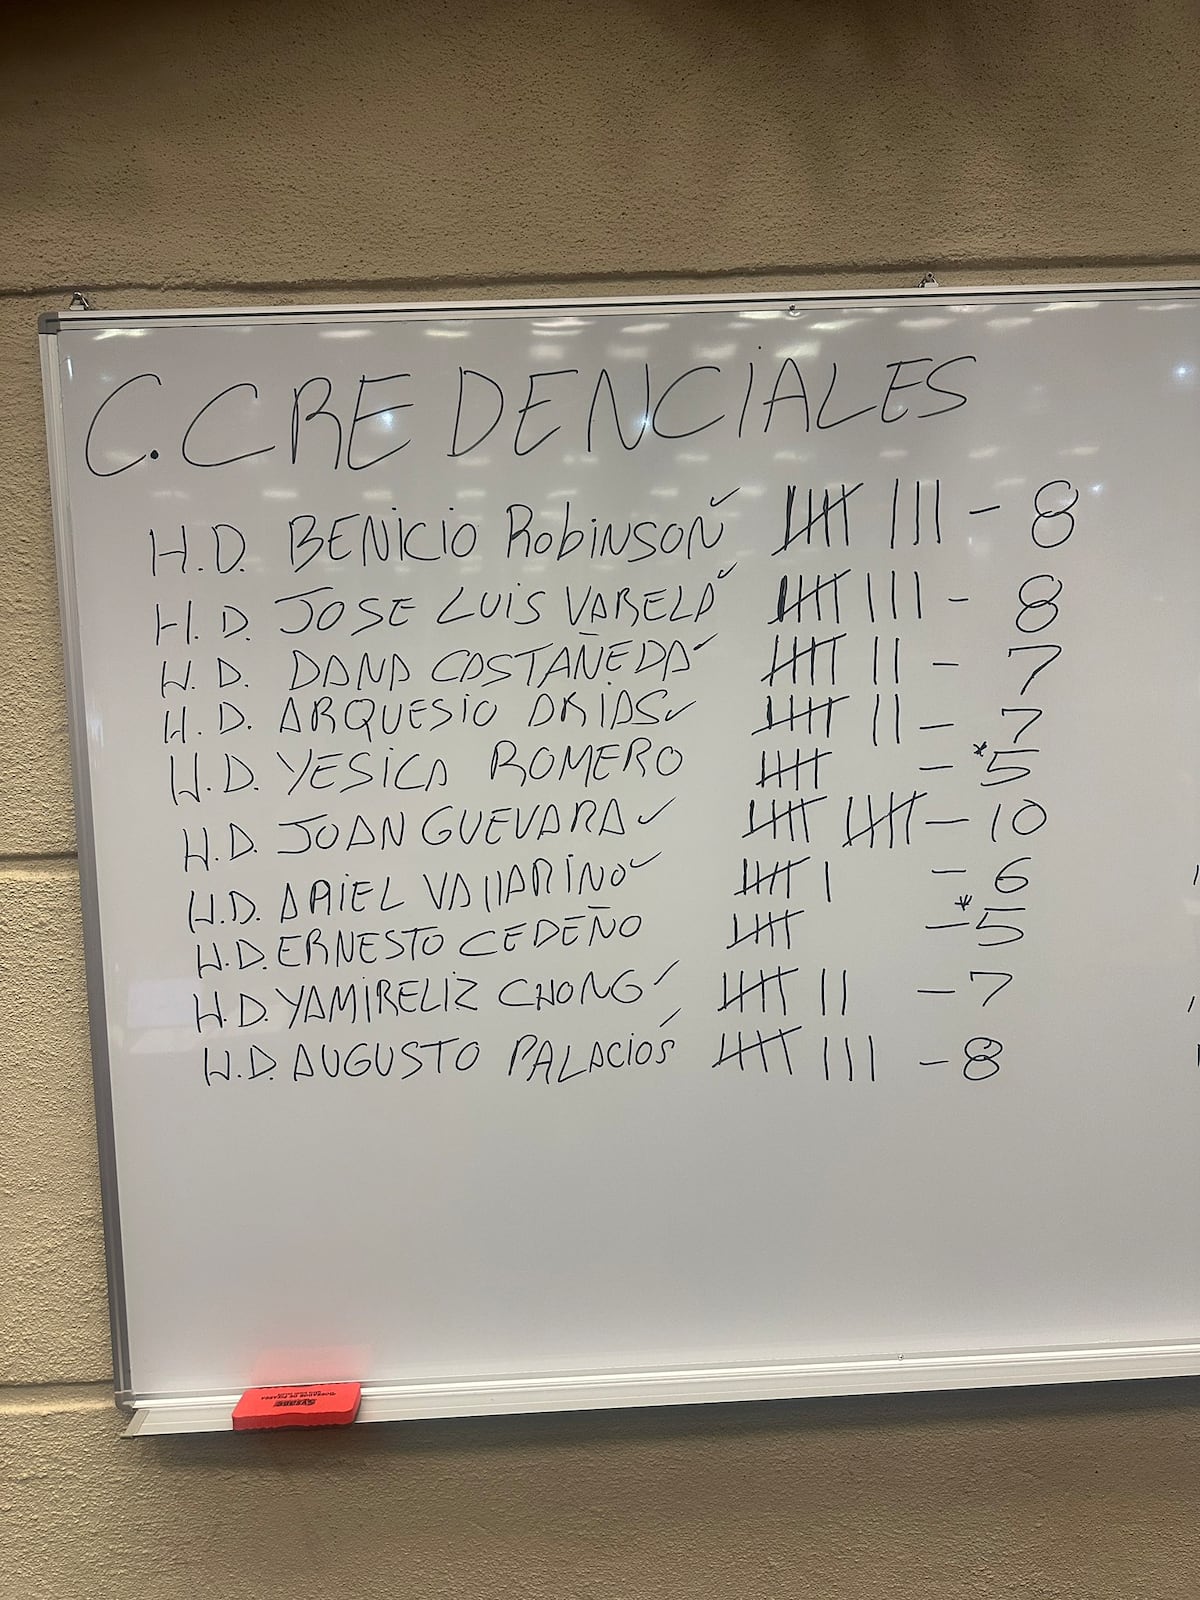 C. CREDENCIALES
H.D. BENICIO RobiNSON ✓ 𝍸 III - 8
H.D. JOSE LUIS VARELA ✓ 𝍸 III - 8
H.D. DANA CASTAÑEDA ✓ 𝍸 II - 7
H.D. ARQUESIO ARIAS ✓ 𝍸 II - 7
H.D. YESICA ROMERO 𝍸 - *5
H.D. JUAN GUEVARA ✓ 𝍸 𝍸 - 10
H.D. ARIEL VALLARINO ✓ 𝍸 I - 6
H.D. ERNESTO CEDEÑO 𝍸 - *5
H.D. YAMIRELIZ CHONG ✓ 𝍸 II - 7
H.D. AUGUSTO PALACIOS ✓ 𝍸 III - 8